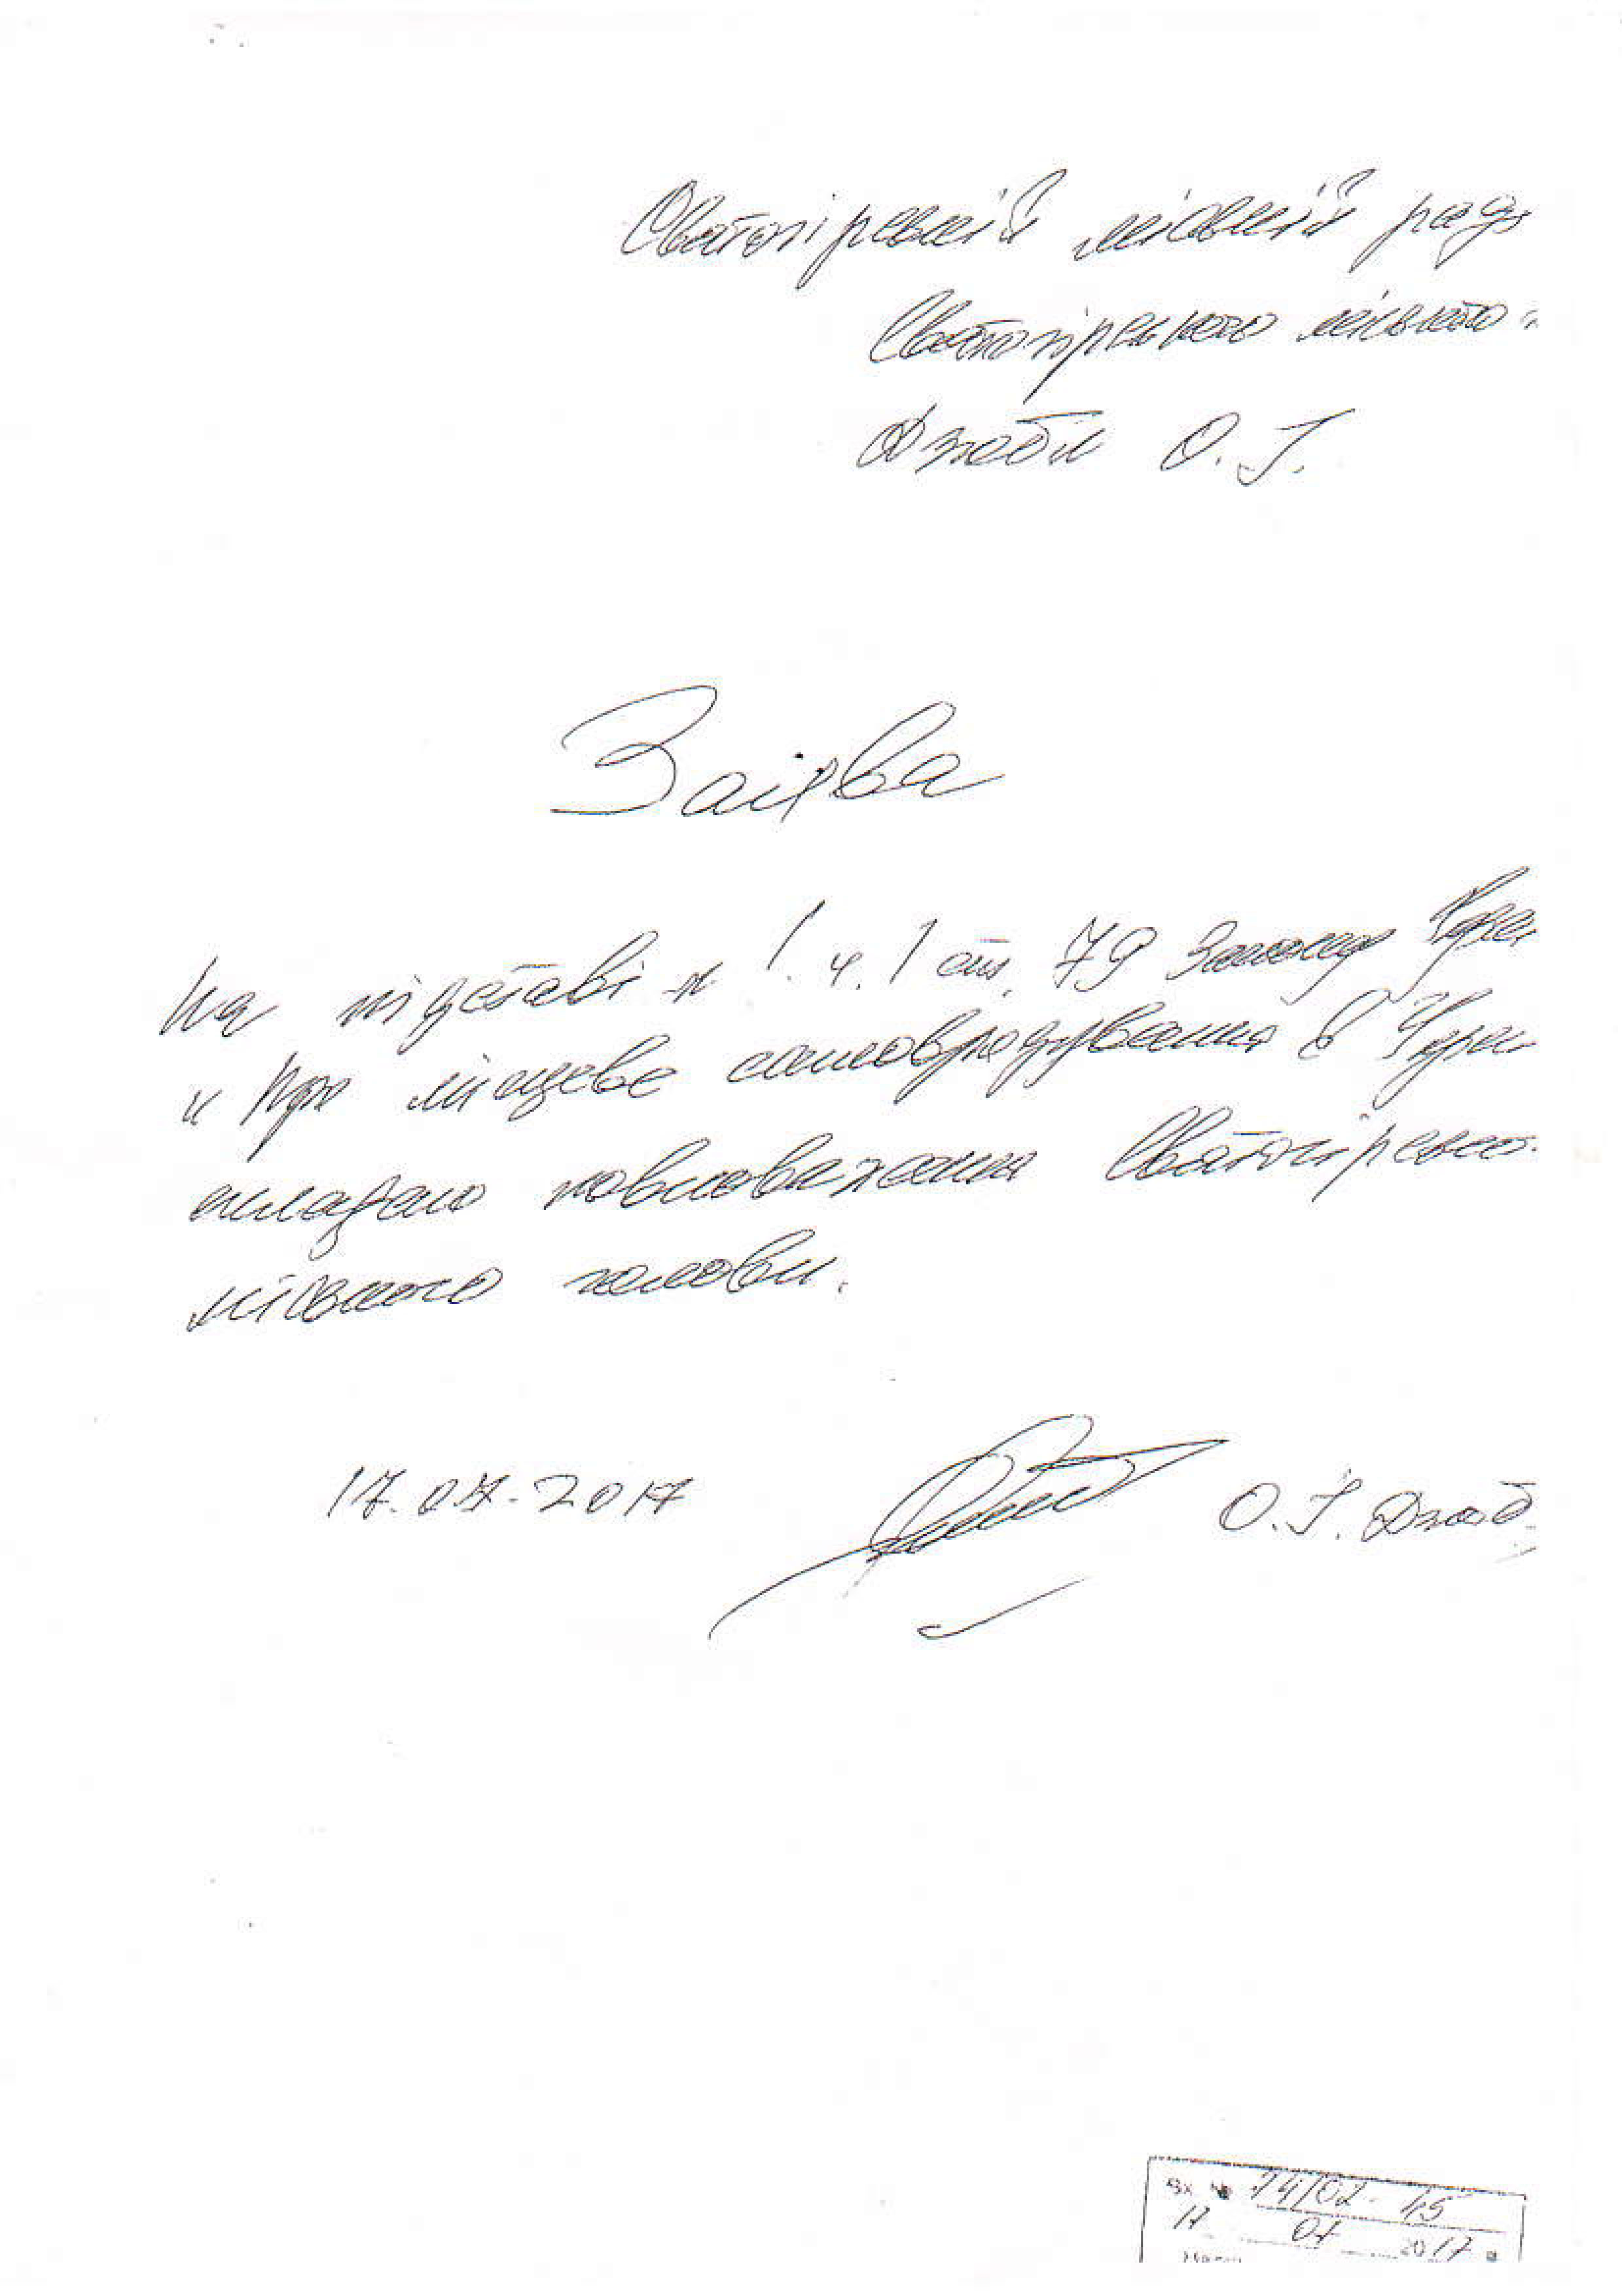 Святогірській міській рад
Святогірського міського
Дзюби О. І.
Заява
На підставі п 1. ч. 1 ст. 79 Закону Укра
" Про місцеве самоврядування в Укра
складаю повноваження Святогірсько
міського голови.
17.07.2017 О. І. Дзюб
Вх. № 14/02-45
17 07 2017